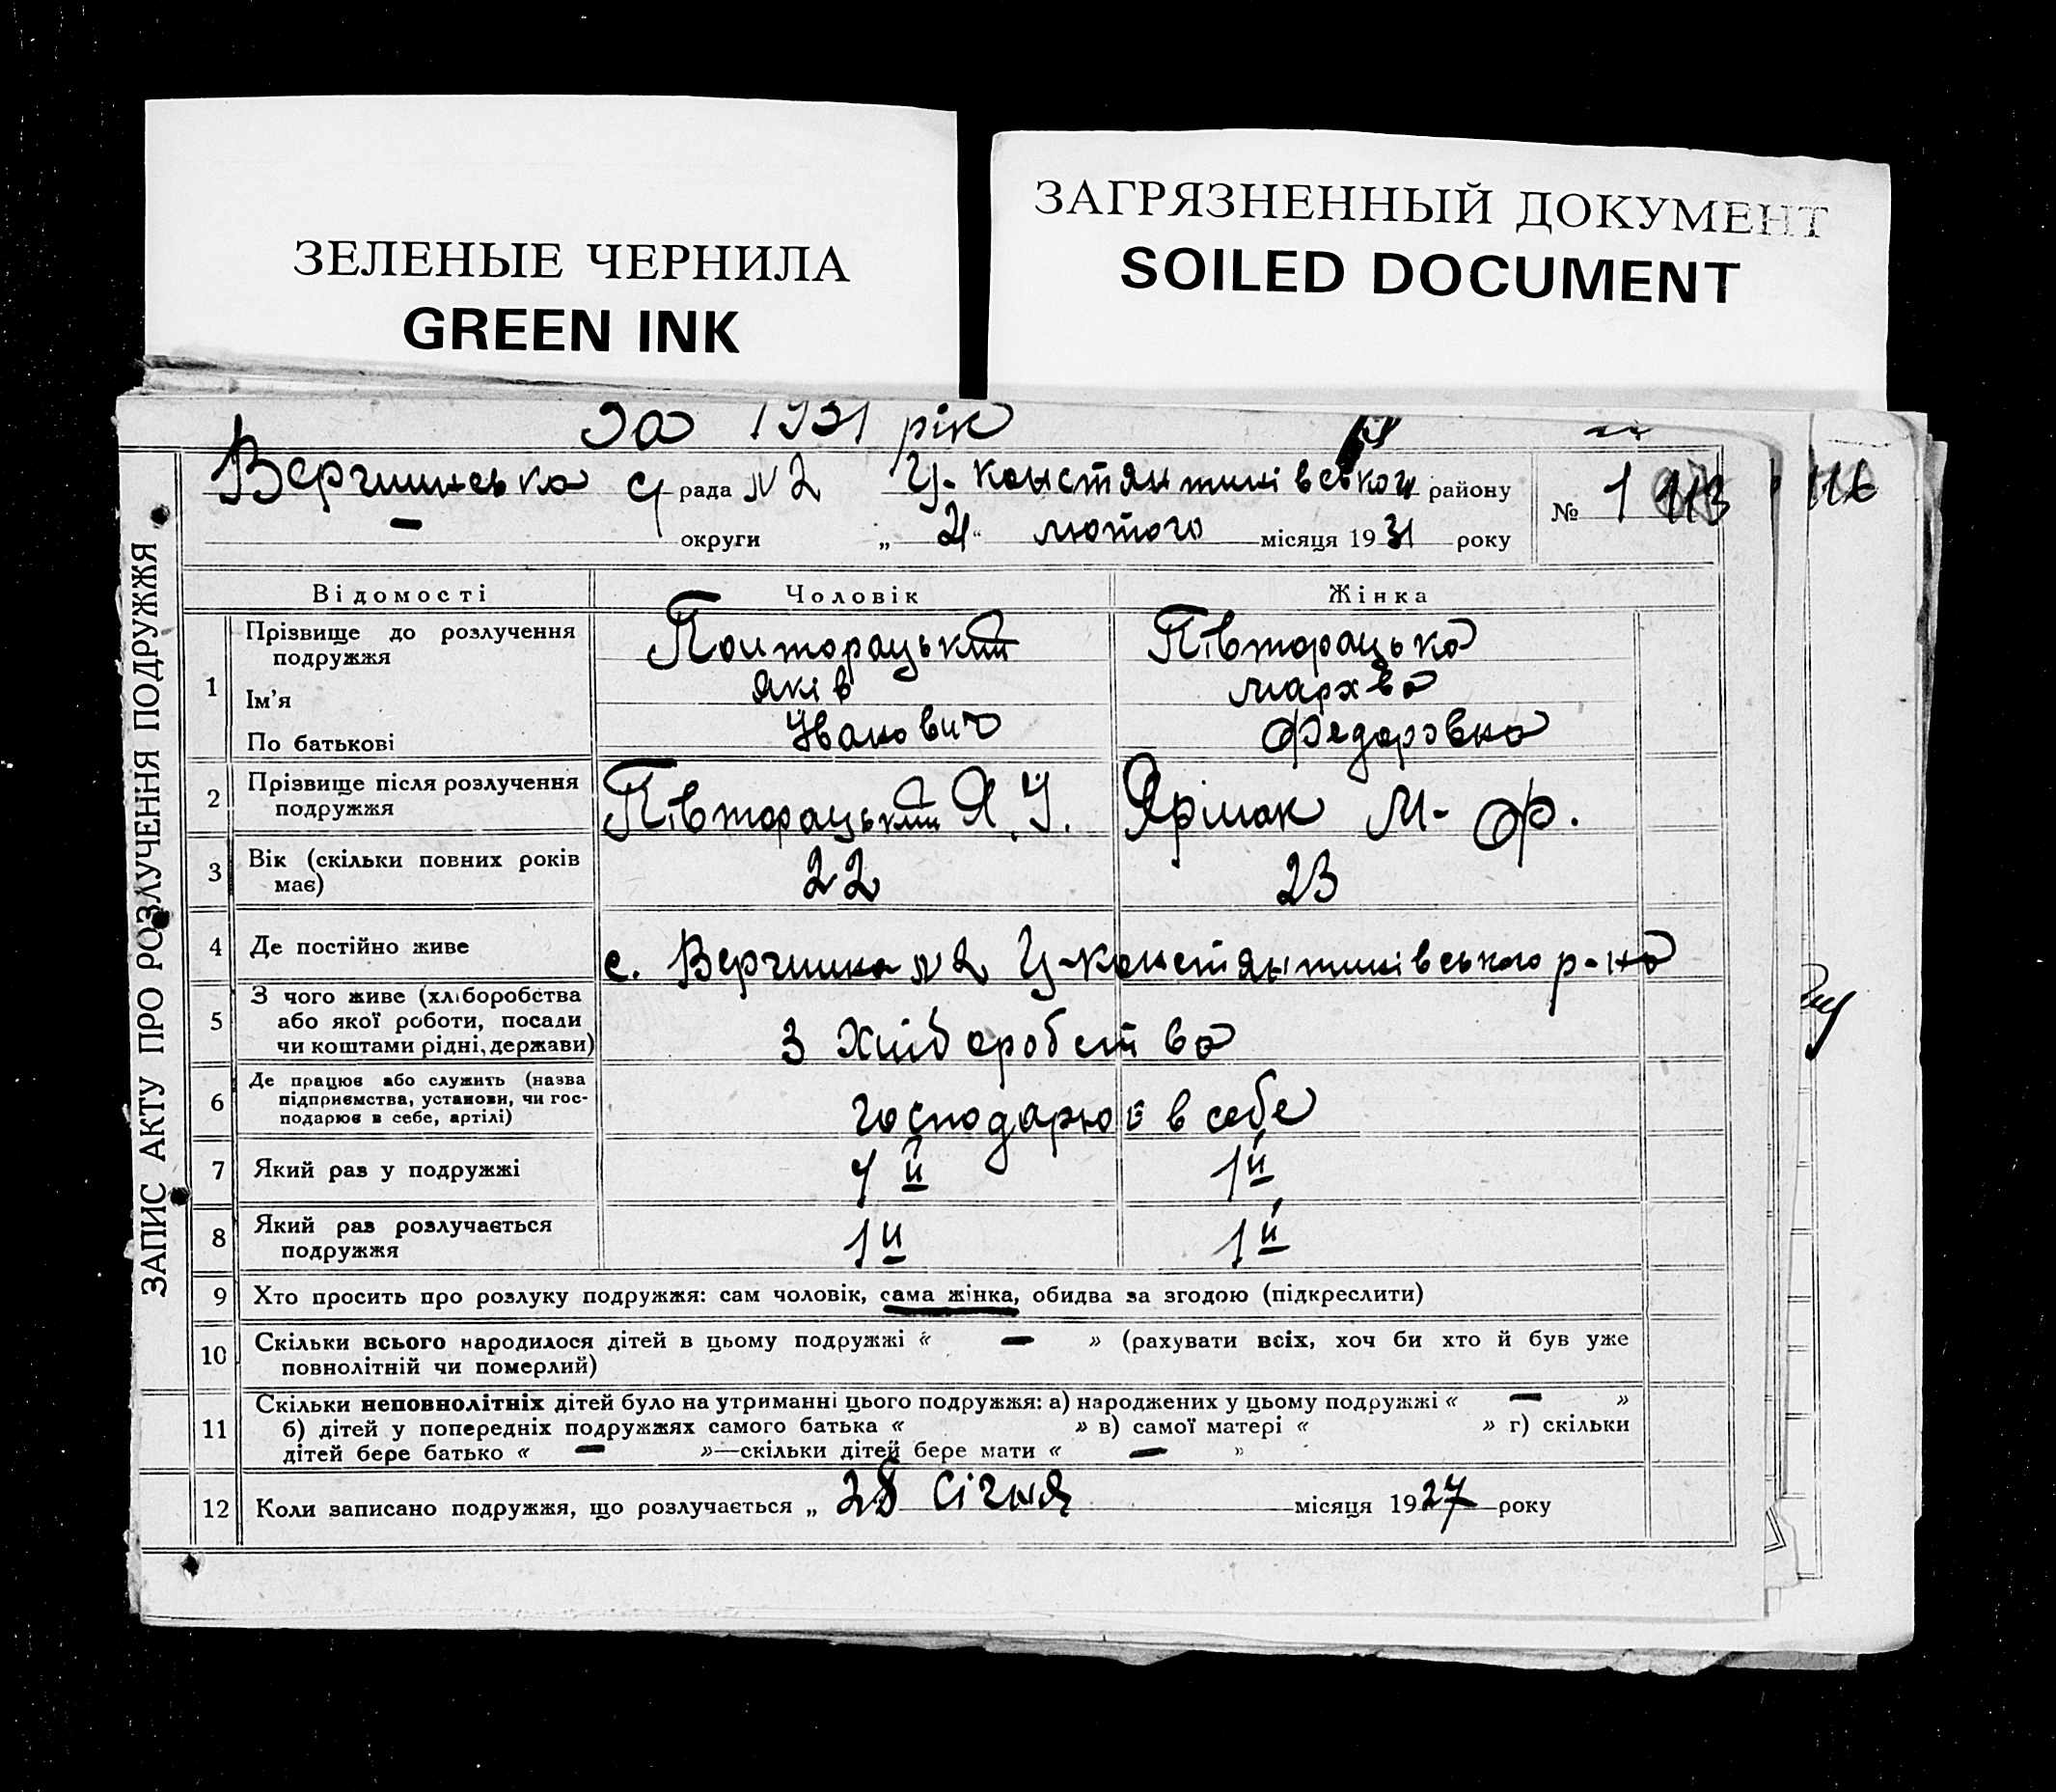 ЗЕЛЕНЫЕ ЧЕРНИЛА
GREEN INK
ЗАГРЯЗНЕННЫЙ ДОКУМЕНТ
SOILED DOCUMENT
За 1931 рік
ЗАПИС АКТУ ПРО РОЗЛУЧЕННЯ ПОДРУЖЖЯ
Вергишська с рада №2 Ц-Констянтинівського району № 1 113 116
— округи „ 21 “ лютого місяця 1931 року
Відомості Чоловік Жінка
1 Прізвище до розлучення подружжя Полторацький Півторацька
Ім'я Яків Мархва
По батькові Іванович Федоровна
2 Прізвище після розлучення подружжя Півторацький Я. І. Ярмак М- Ф.
3 Вік (скільки повних років має) 22 23
4 Де постійно живе с. №2 Ц-Констянтинівського р-на
5 З чого живе (хліборобства або якої роботи, посади чи коштами рідні, держави) З Хліборобства
6 Де працює або служить (назва підприємства, установи, чи господарює в себе, артілі) господарює в себе
7 Який раз у подружжі 1й 1й
8 Який раз розлучається подружжя 1й 1й
9 Хто просить про розлуку подружжя: сам чоловік, сама жінка, обидва за згодою (підкреслити)
10 Скільки всього народилося дітей в цьому подружжі « — » (рахувати всіх, хоч би хто й був уже
повнолітній чи померлий)
11 Скільки неповнолітніх дітей було на утриманні цього подружжя: а) народжених у цьому подружжі « — »
б) дітей у попередніх подружжях самого батька « » в) самої матері « » г) скільки
дітей бере батько « — »—скільки дітей бере мати « — »
12 Коли записано подружжя, що розлучається „ 28 Січня місяця 1927 року